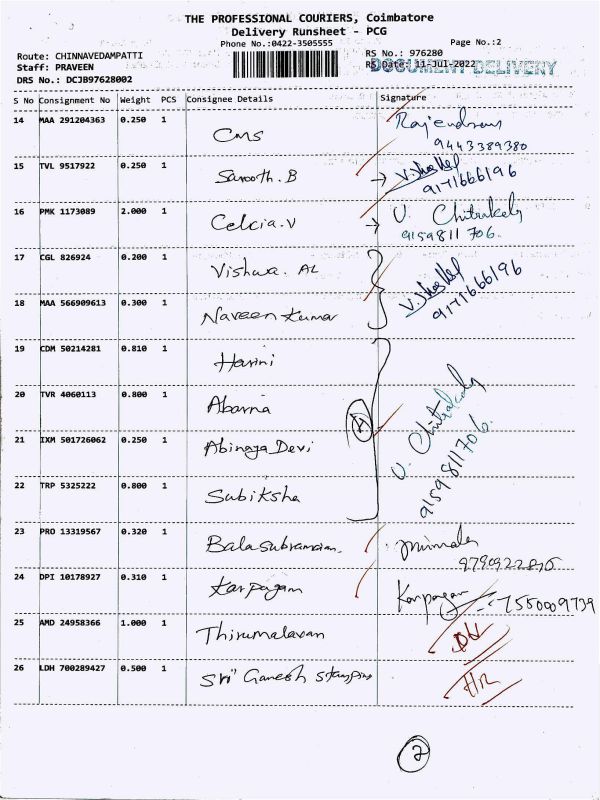 THE PROFESSIONAL COURIERS, Coimbatore
Delivery Runsheet - PCG
Phone No.:0422-3505555
Page No.:2
Route: CHINNAVEDAMPATTI
RS No.: 976280
Staff: PRAVEEN
RS Date: 11-Jul-2022
DOCUMENT DELIVERY
DRS No.: DCJB97628002
S No Consignment No Weight PCS Consignee Details Signature
14 MAA 291204363 0.250 1 CMS Rajendran
9443389380
15 TVL 9517922 0.250 1 Sarooth.B
9171666196
16 PMK 1173089 2.000 1 Celcia.V U. Chitrakala
9159811706.
17 CGL 826924 0.200 1 Vishwa. AL
18 MAA 566909613 0.300 1 Naveen Kumar
9171666196
19 CDM 50214281 0.810 1 Harini
20 TVR 4060113 0.800 1 Abarna
4
U. Chitrakala
9159811706.
21 IXM 501726062 0.250 1 Abinaya Devi
22 TRP 5325222 0.800 1 Subiksha
23 PRO 13319567 0.320 1 Balasubramaian.
24 DPI 10178927 0.310 1 Karpagam Karpagam 7550009739
25 AMD 24958366 1.000 1 Thirumalavan
26 LDH 700289427 0.500 1 Sri Ganesh Stamping
2